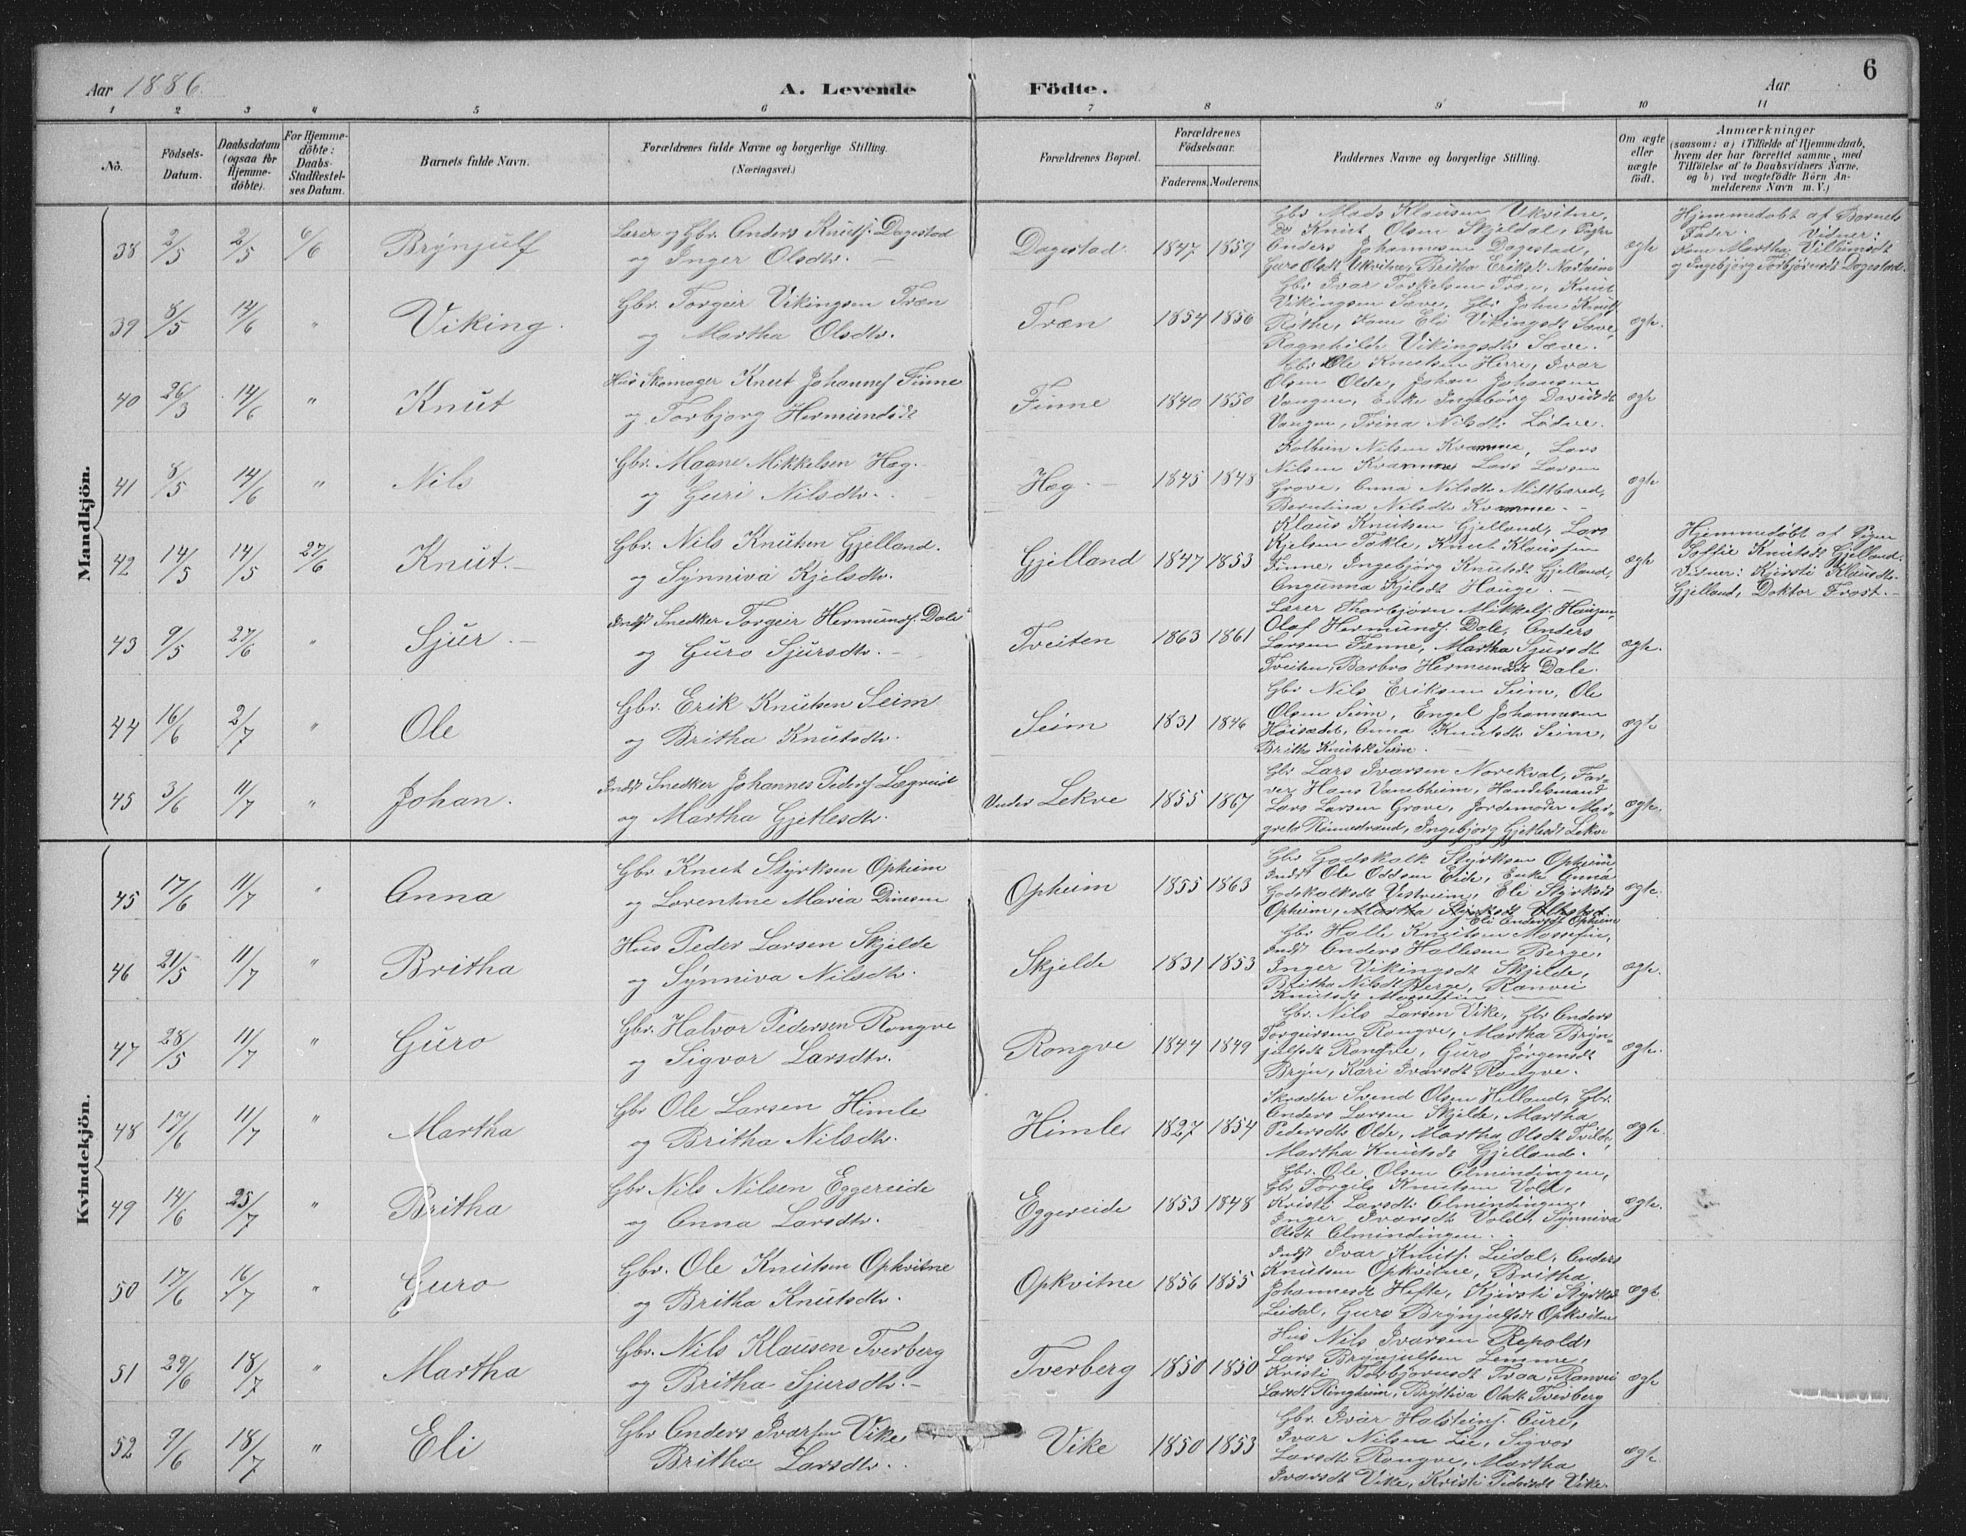 Aar 1886.
A. Levende Födte.
Aar
6
1 2 3 4 5 6 7 8 9 10 11
No.
Födsels-Datum.
Daabsdatum (ogsaa for Hjemmedöbte).
For Hjemmedöbte: Daabs-Stadfestelses Datum.
Barnets fulde Navn.
Forældrenes fulde Navne og borgerlige Stilling. (Næringsvei.)
Forældrenes Bopæl.
Forældrenes Födselsaar.
Faderens. Moderens.
Faddernes Navne og borgerlige Stilling.
Om ægte eller uægte födt.
Anmærkninger (saasom: a) i Tilfælde af Hjemmedaab, hvem der har forrettet samme, med Tilföielse af to Daabsvidners Navne, og b) ved uægtefödte Börn Anmelderens Navn m. V.)
Mandkjön.
38 2/5 2/5 6/6 Brynjulf
Lærer og Gbr. Anders Knuts. Dagestad
og Inger Olsdtr. —
Dagestad. 1847 1859
Gbr Mads Klausen Ukvitne,
Do Knut Olsen Skjeldal,
Anders Johannesen Dagestad,
Guro Olsdt Ukvitne, Britha Eriksdt
ægte
Hjemmedøbt af Barnets
Fader. Vidner:
Kone Martha Villumsdt
og Ingebjørg Torbjørnsdt Dagestad.
39 8/5 14/6 " Viking.
Gbr. Torgeir Vikingsen Træn
og Martha Olsdtr.
Træn 1854 1856
Gbr Ivar Torkelsen Træn, Knut
Vikingsen Sæve, Gbr John Knuts
Røthe, Kone Eli Vikingsdt Sæve,
Ragnhilde Vikingsdtr Sæve.
ægte.
40 26/3 14/6 " Knut
Hus Skomager Knut Johannes Finne
og Torbjørg Hermundsdt
Finne 1840 1850
Gbr Ole Knutsen Herre, Ivar
Olsen Olde, Johan Johansen
Vangen, Enke Ingebørg Davidsdt
Vangen, Trina Nilsdt Lødve.
ægte
41 8/5 14/6 " Nils
Gbr. Magne Mikkelsen Hæg —
og Guri Nilsdtr.
Hæg. — 1845 1848
Kolbein Nilsen Kvamme, Lars
Nilsen Kvamme Lars Larsen
Grove, Anna Nilsdtr Midtbæred,
Berntina Nilsdtr Kvamme.
ægte
42 14/5 14/5 27/6 Knut. —
Gbr. Nils Knutsen Gjelland.
og Synniva Kjelsdtr.
Gjelland 1847 1853
Klaus Knutsen Gjelland, Lars
Kjelsen Takle, Knut Klaussen
Finne, Ingebjørg Knutsdt Gjelland,
Angunna Kjelsdt Hauge. —
ægte
Hjemmedøbt af Pigen
Soffie Knutsdt Gjelland.
Vidner: Kjersti Klausdtr.
Gjelland, Doktor Frost. —
43 9/5 27/6 " Sjur —
Inds Snedker Torgeir Hermunds. Dale
og Guro Sjursdtr. —
Tveiten 1863 1861
Lærer Thorbjørn Mikkels. Haugen,
Olaf Hermunds. Dale, Anders
Larsen Fenne, Martha Sjursdt
Tveiten, Barbro Hermundsdt Dale.
ægte.
44 16/6 2/7 " Ole
Gbr. Erik Knutsen Seim
og Britha Knutsdtr.
Seim 1831 1846
Gbr Nils Eriksen Seim, Ole
Olsen Seim, Engel Johannesen
Høisædel, Anna Knutsdt Seim,
Brithe Knutsdt Seim.
ægte
45 3/6 11/7 " Johan.
Inds Snedker Johannes Peders Lægreid
og Martha Gjetlesdtr.
Under Lekve 1855 1867
Gbr Lars Ivarsen Norekval, Far-
ver Hans Vambheim, Handelsmand
Lars Larsen Grove, Jordemoder Mar-
grete Rønnestrand, Ingebjørg Gjetlesdt Lekve
ægte.
Kvindekjön.
45 17/6 11/7 " Anna
Gbr Knut Styrksen Opheim
og Lorentine Maria Dinesen
Opheim 1855 1863
Gbr Godskalk Styrksen Opheim
Inds Ole Oddsen Eide, Enke Anna
Godskalksdt Vestreim, Eli Styrksdt
Opheim, Martha Styrksdt
Eli Andersdt Opheim
ægte.
46 21/5 11/7 " Britha
Hus Peder Larsen Skjelde
og Synniva Nilsdtr.
Skjelde 1831 1853
Gbr Halle Knutsen Mossefin,
Inds Anders Hallesen Berge,
Inger Vikingsdt Skjelde,
Britha Nilsdt Berge, Ranvei
Knutsdt Mossefin
ægte.
47 28/5 11/7 " Guro
Gbr. Halvor Pedersen Rongve
og Sigvor Larsdtr.
Rongve 1844 1849
Gbr. Nils Larsen Vike, Gbr Anders
Torgeirsen Rongve, Martha Bryn-
julfsdt Rongve, Guro Jørgensdt
Bryn, Kari Ivarsdt Rongve.
ægte.
48 17/6 11/7 " Martha
Gbr Ole Larsen Himle
og Britha Nilsdtr.
Himle 1827 1854
Skrædder Svend Olsen Helland, Gbr.
Anders Larsen Skjelde, Martha
Pedersdt Olde, Martha Olsdt
Martha Knutsdt Gjelland.
ægte.
49 14/6 25/7 " Britha
Gbr Nils Nilsen Eggereide
og Anna Larsdtr.
Eggereide 1853 1848
Gbr. Ole Olsen Almindingen,
Gbr Torgils Knutsen Vold,
Kristi Larsdt Almindingen,
Inger Ivarsdt Vold, Synniva
Olsdt Almindingen.
ægte.
50 17/6 16/7 " Guro
Gbr. Ole Knutsen Opkvitne
og Britha Knutsdtr.
Opkvitne 1856 1855
Inds Ivar Knuts. Leidal, Anders
Knutsen Opkvitne, Britha
Johannesdt Hefte, Kjersti Styrksdt
Leidal, Guro Brynjulfsdt Opkvitne
ægte
51 29/6 18/7 " Martha
Gbr. Nils Klausen Tverberg
og Britha Sjursdtr. —
Tverberg 1850 1850
Hus Nils Ivarsen Repold,
Lars Brynjulfsen Lemme,
Kristi Torbjørnsdt Traa, Ranvei
Larsdt Ringheim, Olsdt Tverberg
ægte
52 9/6 18/7 " Eli
Gbr Anders Ivarsen Vike
Britha Larsdtr.
Vike 1850 1853
Gbr. Ivar Halsteins. Aure,
Ivar Nilsen Lie, Sigvor
Larsdt Rongve, Martha
Ivarsdt Vike, Kristi Pedersdt Vike.
ægte